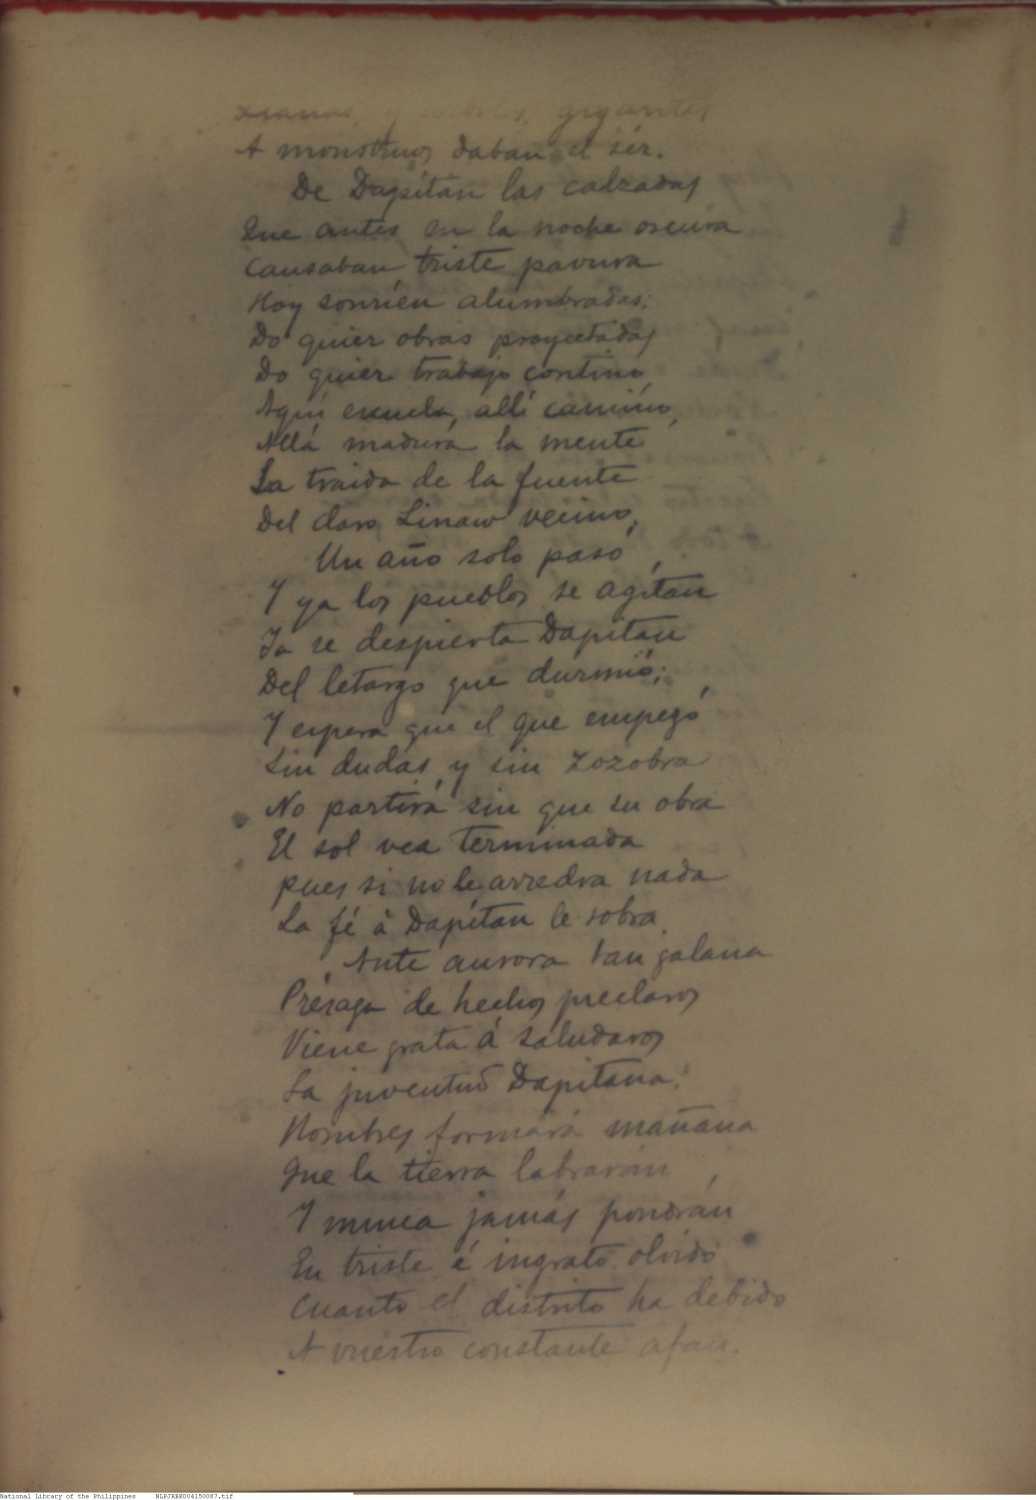 y gigantes
A monstruos daban el sér.
De Dapitan las calzadas
Que antes en la noche oscura
Causaban triste pavura
Hoy sonrien alumbradas;
Do quier obras proyectadas
Do quier trabajo contino,
Aquí escuela, allí camino,
Allá madura la mente
La traida de la fuente
Del claro Linaw vecino,
Un año solo pasó,
Y ya los pueblos se agitan
Ya se despierta Dapitan
Del letargo que durmió;
Y espera que el que empezó
Sin dudas y sin zozobra
No partirá sin que su obra
El sol vea terminada
pues si no le arredra nada
La fé á Dapitan le sobra.
Ante aurora tan galana
Présaga de hechos preclaros
Viene grata á saludaros
La juventud Dapitana.
Hombres formará mañana
Que la tierra labrarán
Y nunca jamás pondrán
En triste é ingrato olvido
Cuanto el distrito ha debido
A vuestro constante afan.
National Library of the Philippines NLPJRBW004150087.tif